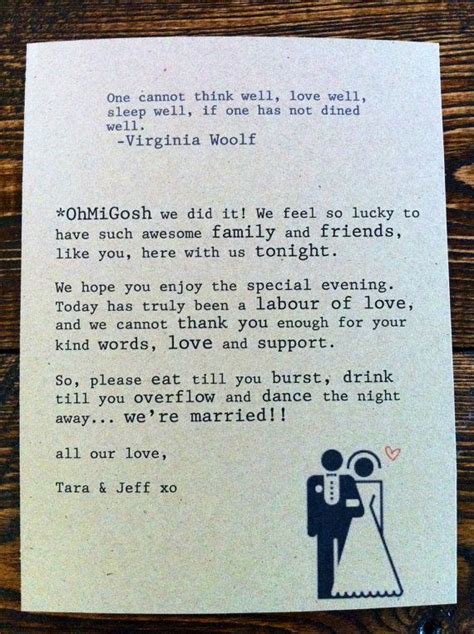 One cannot think well, love well,
sleep well, if one has not dined
well.
-Virginia Woolf
*OhMiGosh we did it! We feel so lucky to
have such awesome family and friends,
like you, here with us tonight.
We hope you enjoy the special evening.
Today has truly been a labour of love,
and we cannot thank you enough for your
kind words, love and support.
So, please eat till you burst, drink
till you overflow and dance the night
away... we're married!!
all our love,
Tara & Jeff xo